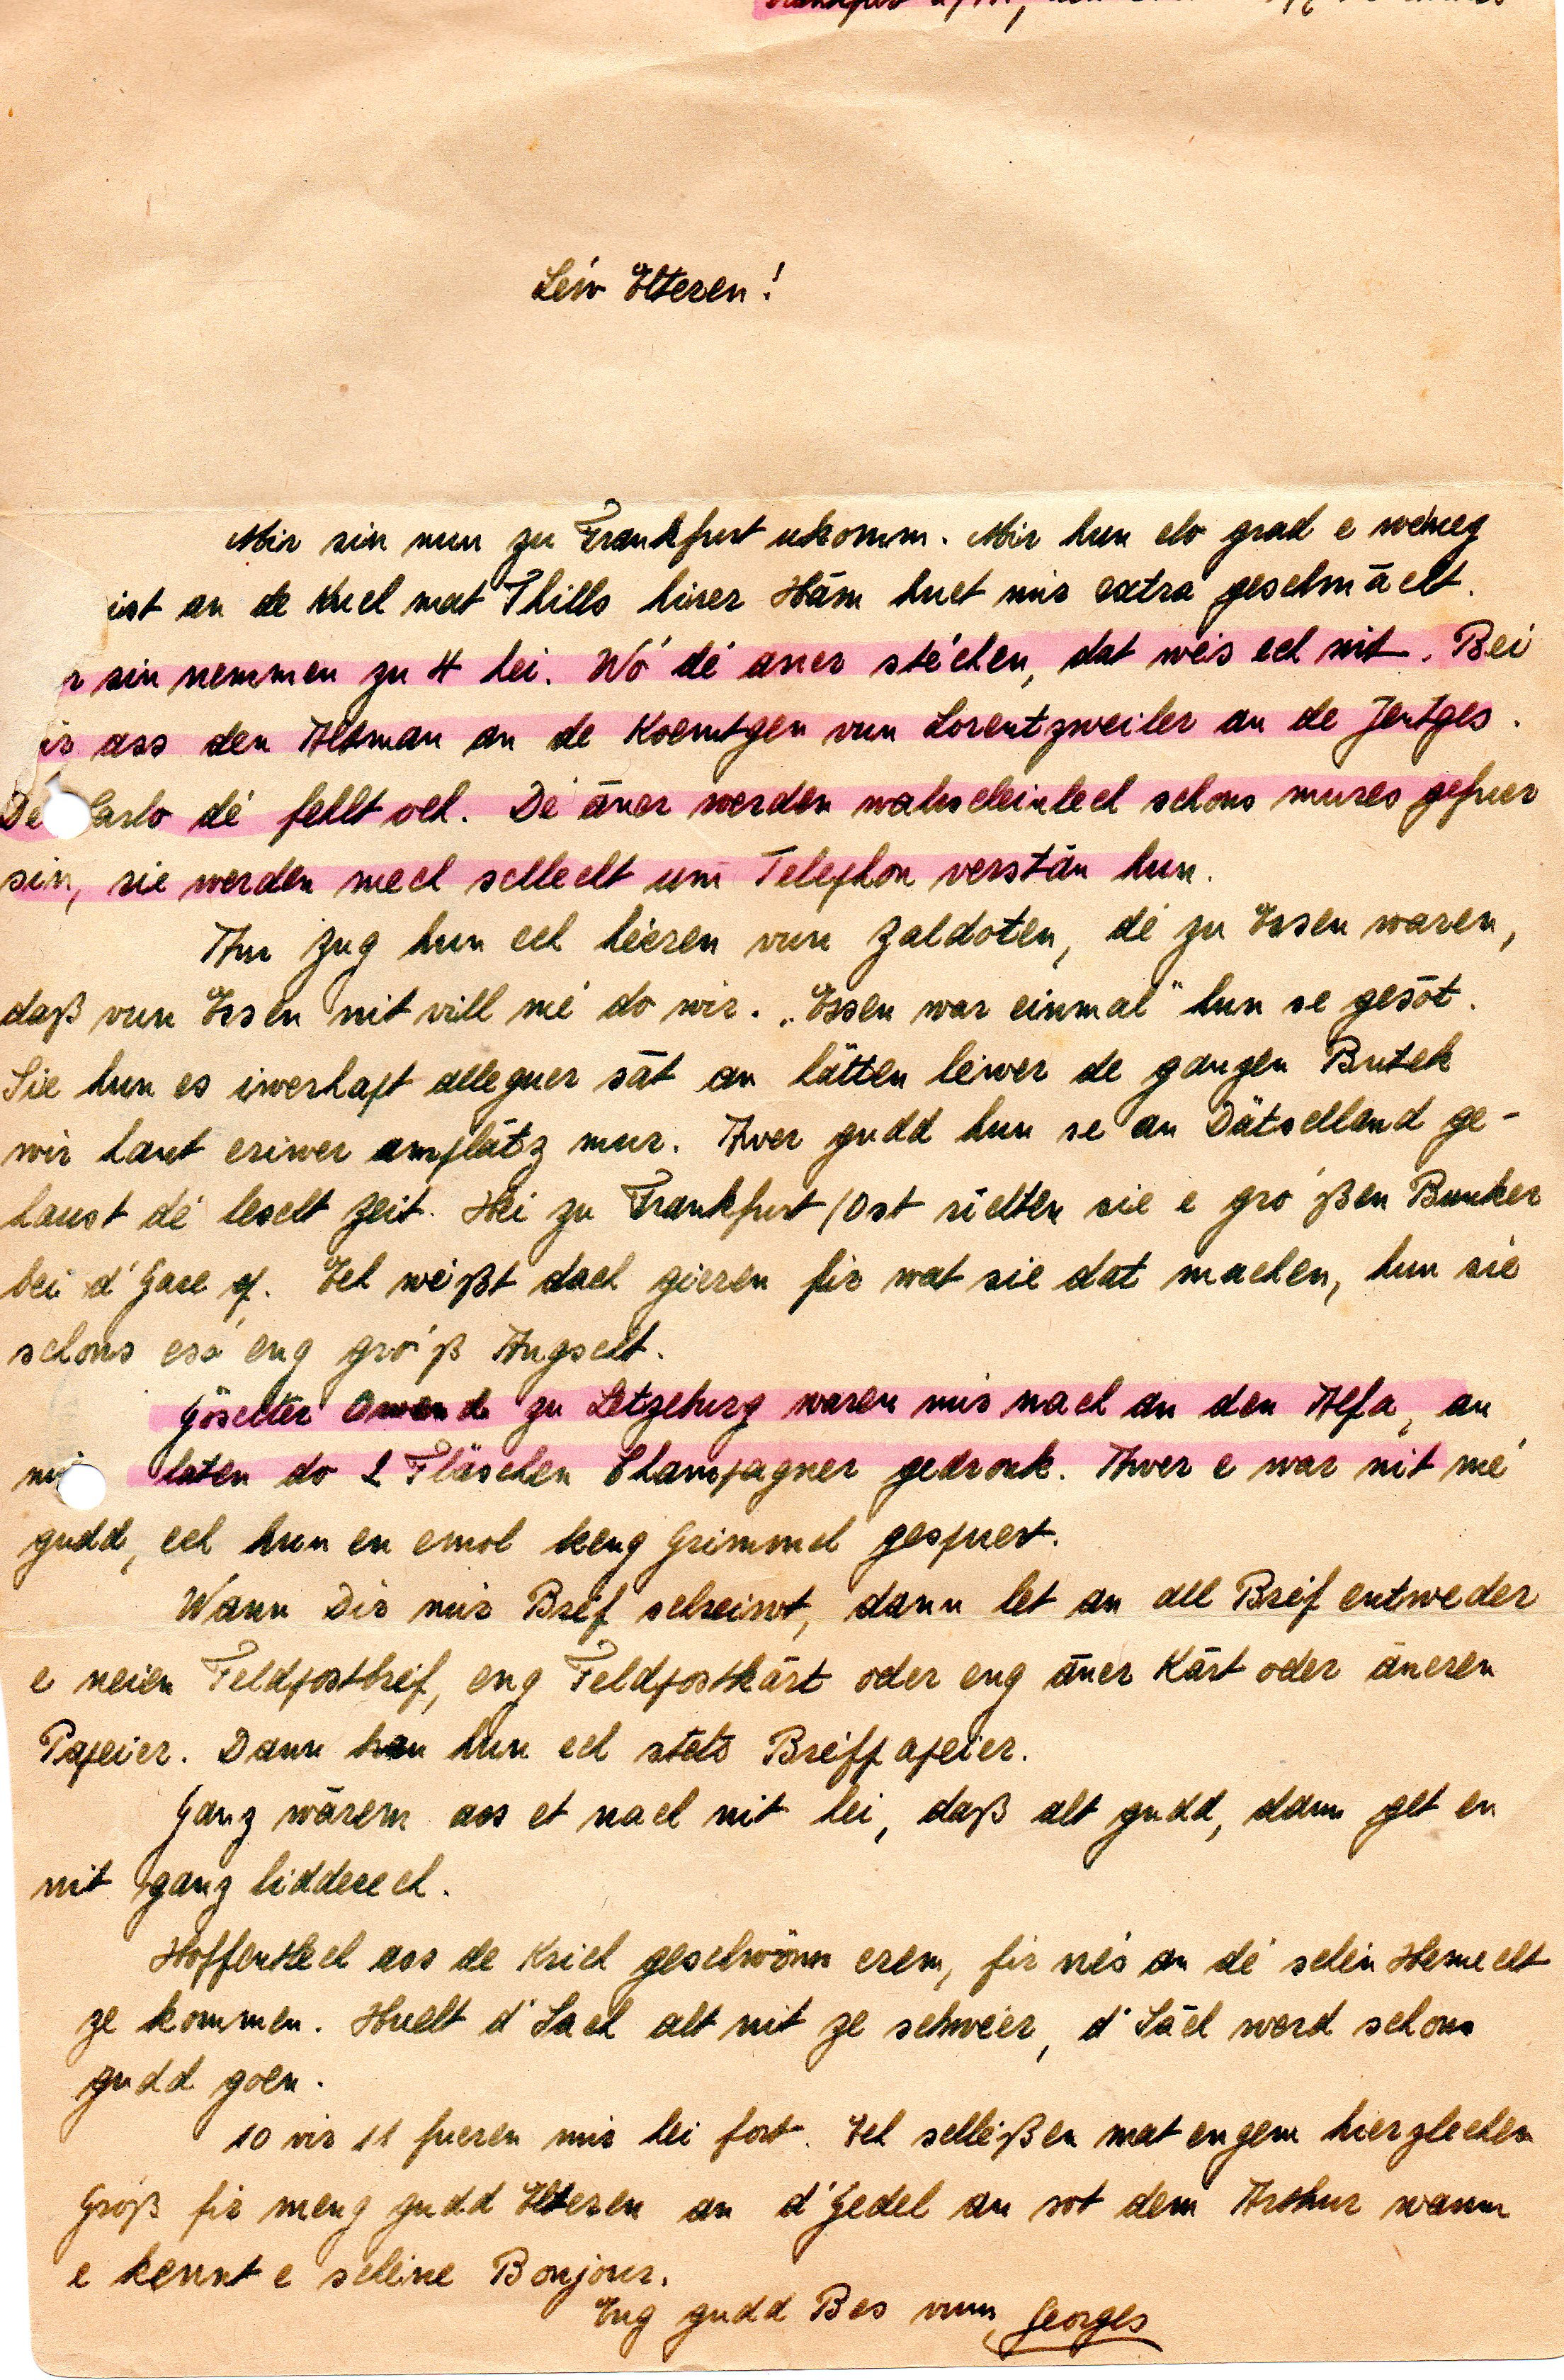 Léiw Elteren!
Mir sin nun zu Frankfurt ukomm. Mir hun elo grad e wéineg
ist an de Kuch mat Thills hirer Häm huet mir extra geschmācht.
r sin nemmen zu 4 hei. Wó dé aner stéchen, dat wés ech nit. Bei
ir ass den Altman an de Koemtgen vun Lorentzweiler an de Jentges.
De Carlo dé fehlt och. Dé āner werden wahscheinlech schons mures gefuer
sin, sie werden mech schlecht um Telephon verstān hun.
Am Zug hun ech héieren vun Zaldoten, dé zu Essen waren,
daß vun Essen nit vill mé do wir. „Essen war einmal" hun se gesōt.
Sie hun es iwerhapt alleguer sāt an hätten léiwer de ganzen Butek
wir haut eriwer amplātz mur. Awer gudd hun se an Dätschland ge-
haust dé lescht Zeit. Hei zu Frankfurt/Ost richten sie e gróßen Bunker
bei d'Gare op. Ech wéißt dach gieren fir wat sie dat machen, hun sie
schons esó eng gróß Angscht.
Göschter Owend zu Letzeburg waren mir nach an den Alfa, an
mir haten do 2 Fläschen Champagner gedronk. Awer e war nit mé
gudd, ech hun en emol keng Grimmel gespuert.
Wann Dir mir Bréf schreiwt, dann let an all Bréf entweder
e neien Feldpostbréf, eng Feldpostkārt oder eng āner Kārt oder āneren
Papeier. Dann hun ech stets Bréifpapeier.
Ganz wārem ass et nach nit hei, daß alt gudd, dann get en
nit ganz lidderech.
Hoffentlech ass de Krich geschwönn erem, fir nés an dé schéin Hemecht
ze kommen. Huelt d'Sach alt nit ze schwéier, d'Sāch werd schons
gudd goen.
10 vir 11 fueren mir hei fort. Ech schléißen mat engem hierzlechen
Gróß fir meng gudd Elteren an d'Gedel an sot dem Arthur wann
e kennt e schéine Bonjour.
Eng gudd Bes vum Georges